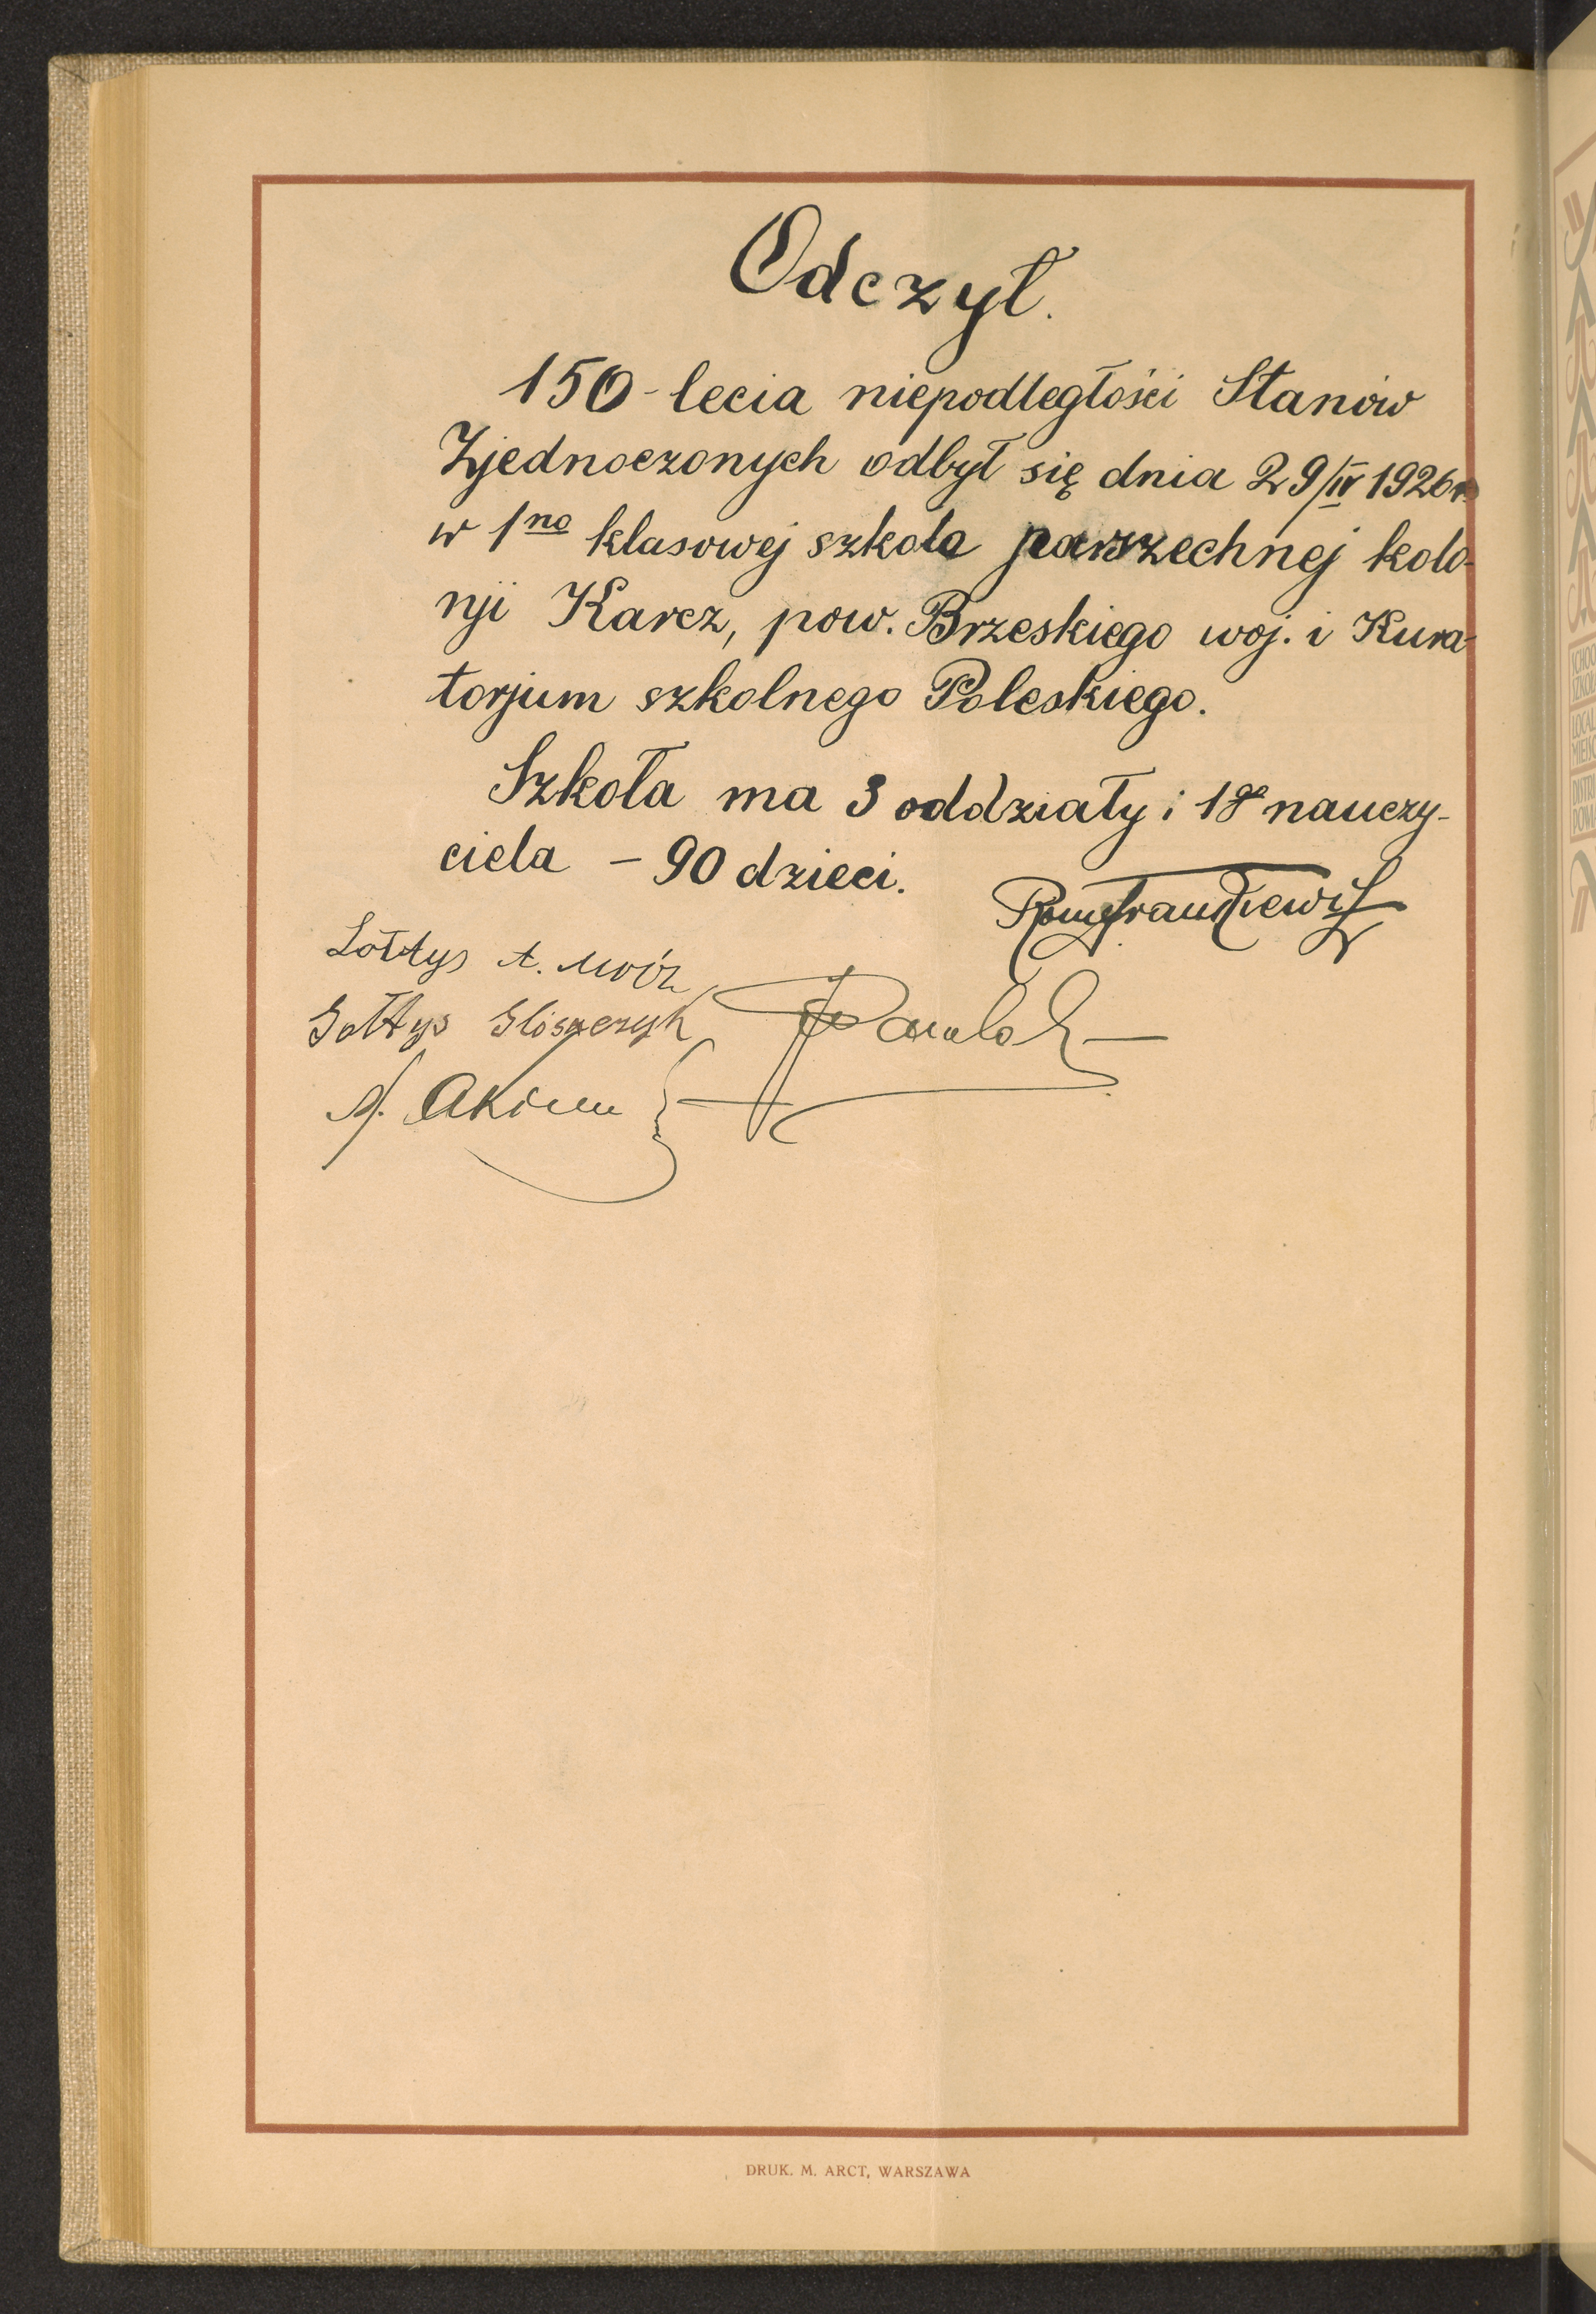 Odczyt.
150-lecia niepodległości Stanów
Zjednoczonych odbył się dnia 29/IV 1926 r.
w 1no klasowej szkole powszechnej kolo-
nji Karcz, pow. Brzeskiego woj. i Kura-
torjum szkolnego Poleskiego.
Szkoła ma 3 oddziały i 1go nauczy-
ciela – 90 dzieci.
Sołtys A. Mróz
Sołtys
A. Akimu
DRUK. M. ARCT, WARSZAWA